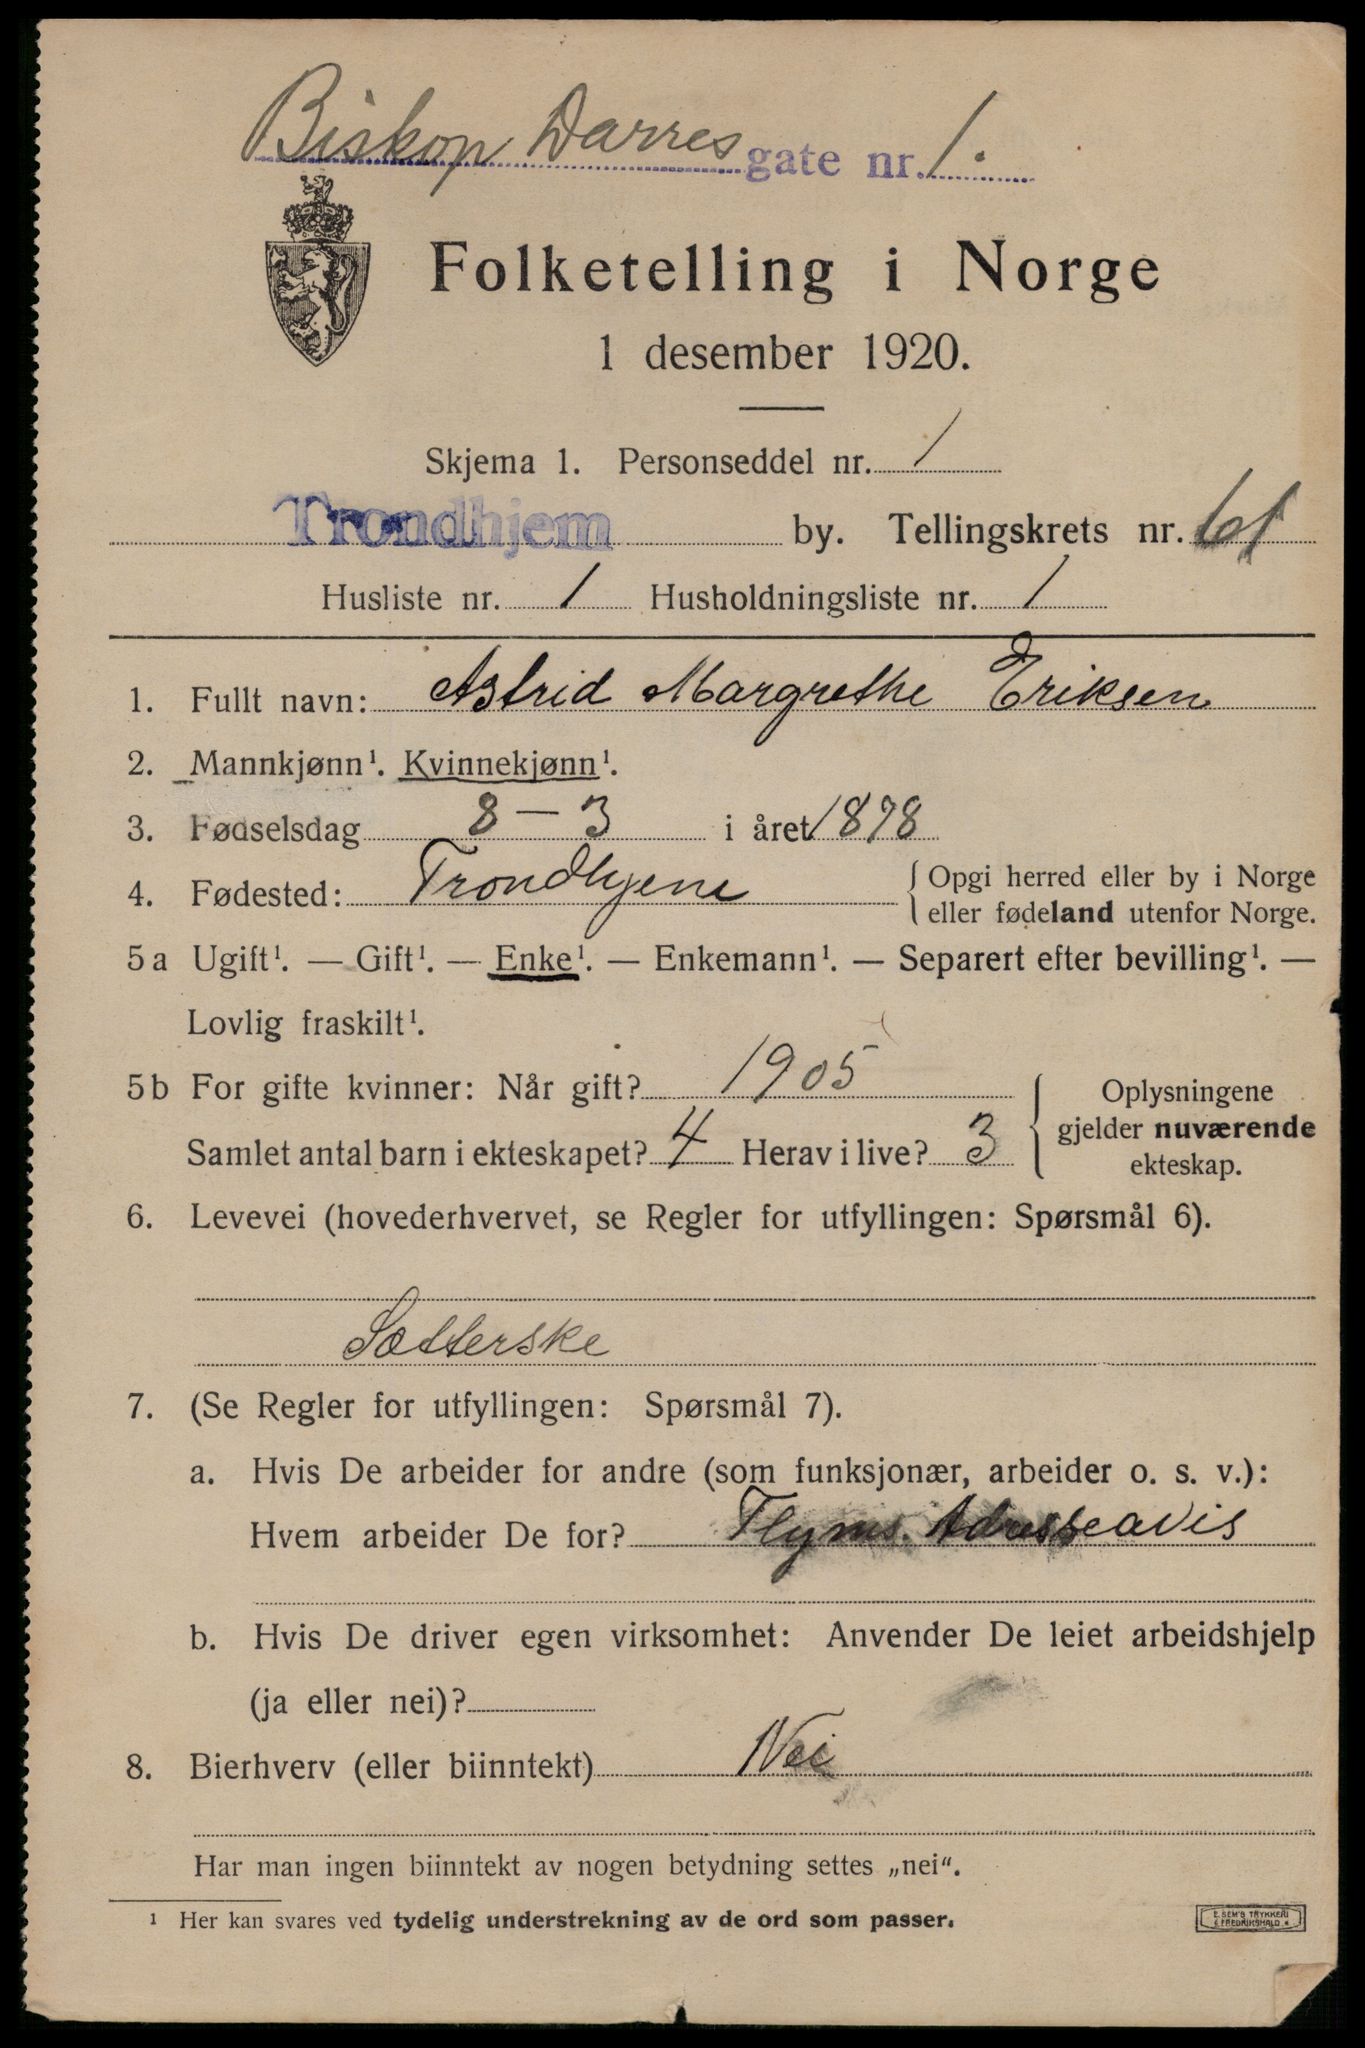 Biskop Darres gate nr. 1.
Folketelling i Norge
1 desember 1920.
Skjema 1. Personseddel nr. 1
Trondhjem by. Tellingskrets nr. 61
Husliste nr. 1 Husholdningsliste nr. 1
1. Fullt navn: Astrid Margrethe Eriksen
2. Mannkjønn¹. Kvinnekjønn¹.
3. Fødselsdag 8 – 3 i året 1878
4. Fødested: Trondhjem { Opgi herred eller by i Norge
eller fødeland utenfor Norge.
5 a Ugift¹. — Gift¹. — Enke¹. — Enkemann¹. — Separert efter bevilling¹. —
Lovlig fraskilt¹.
5 b For gifte kvinner: Når gift? 1905
Samlet antal barn i ekteskapet? 4 Herav i live? 3
{ Oplysningene
gjelder nuværende
ekteskap.
6. Levevei (hovederhvervet, se Regler for utfyllingen: Spørsmål 6).
Sætterske
7. (Se Regler for utfyllingen: Spørsmål 7).
a. Hvis De arbeider for andre (som funksjonær, arbeider o. s. v.):
Hvem arbeider De for? Thjms. Adresseavis
b. Hvis De driver egen virksomhet: Anvender De leiet arbeidshjelp
(ja eller nei)?
8. Bierhverv (eller biinntekt) Nei
Har man ingen biinntekt av nogen betydning settes „nei“.
¹ Her kan svares ved tydelig understrekning av de ord som passer.
E. SEM'S TRYKKERI
FREDRIKSHALD